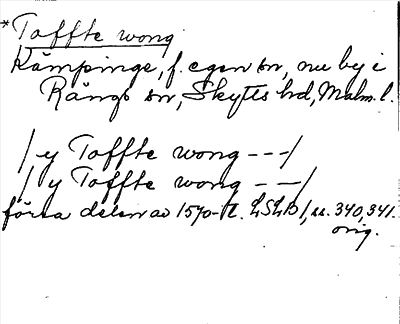 *Toffte wong
Kämpinge, f. egen sn, nu by i
Rängs sn, Skytts hd, Malm. l.
/ y Toffte wong ---/
/ y Toffte wong ---/
förra delen av 1570-t. LSLB 1, ss. 340, 341.
orig.